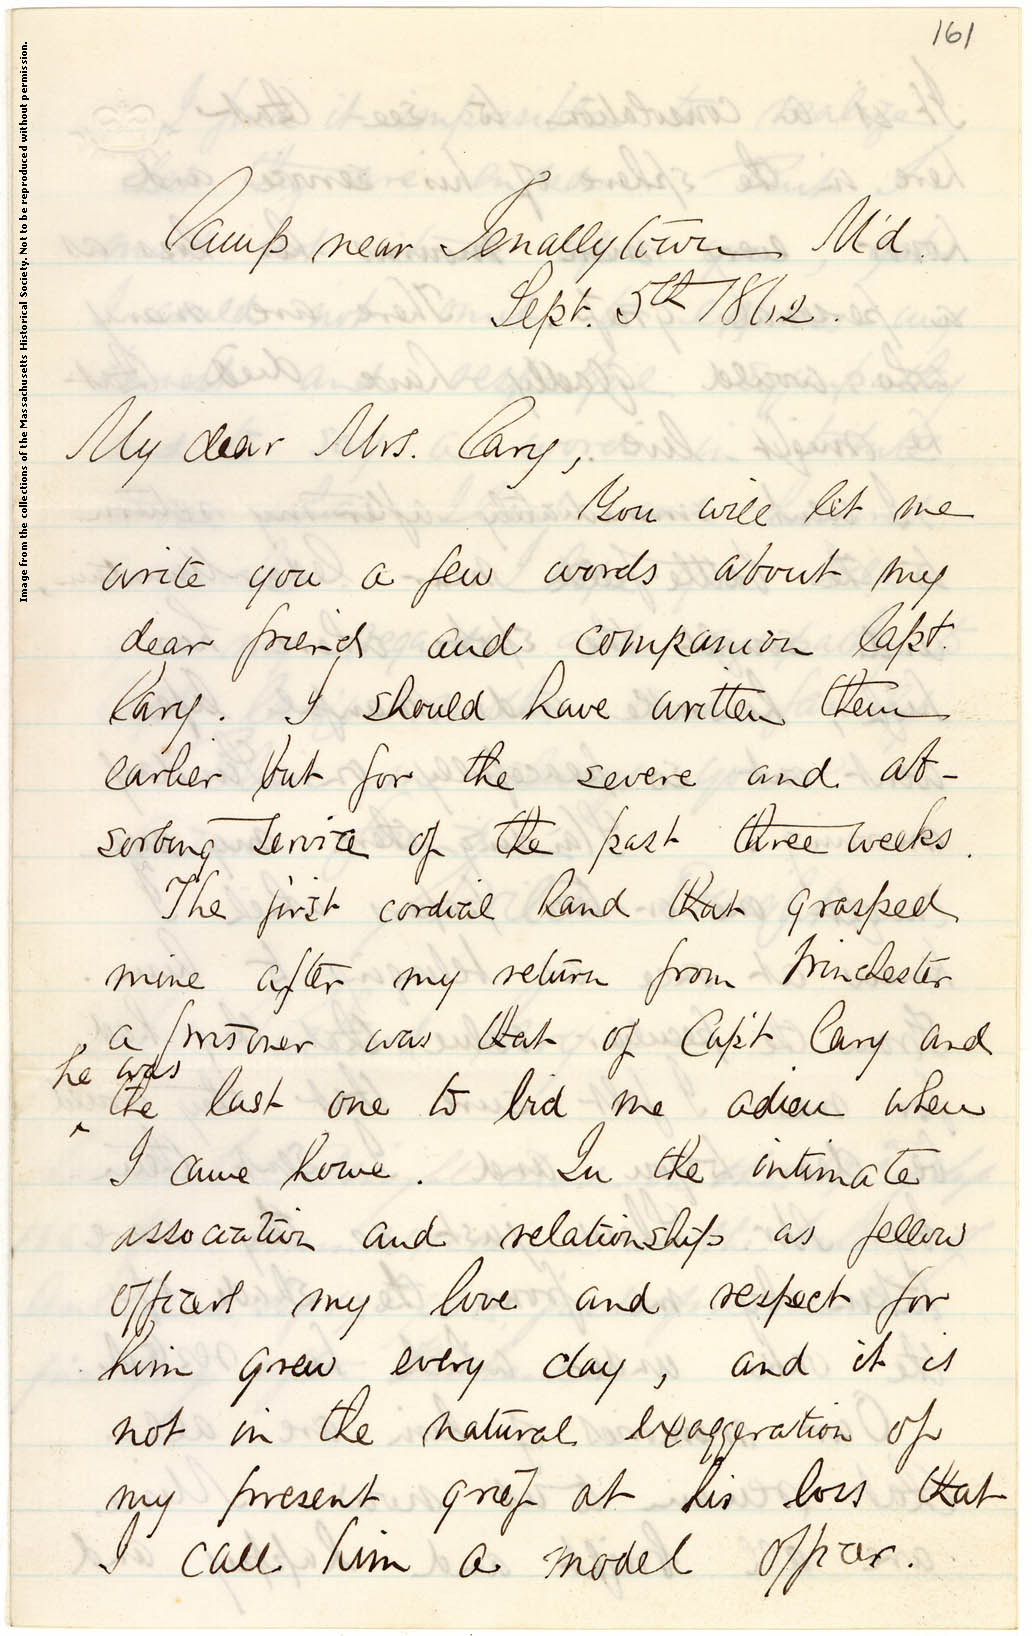 161
Image from the collections of the Massachusetts Historical Society. Not to be reproduced without permission.
Camp near Tenallytown M'd.
Sept. 5th 1862.
My dear Mrs. Cary,
You will let me
write you a few words about my
dear friend and companion Capt.
Cary. I should have written them
earlier but for the severe and ab-
sorbing service of the past three weeks.
The first cordial hand that grasped
mine after my return from Winchester
a prisoner was that of Cap't Cary and
he was
^ the last one to bid me adieu when
I came home. In the intimate
association and relationships as fellow
officers my love and respect for
him grew every day, and it is
not in the natural exaggeration of
my present grief at his loss that
I call him a model officer.